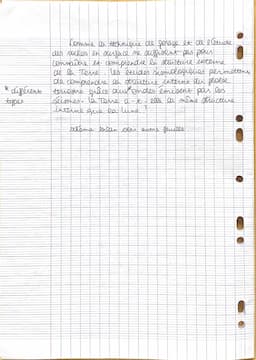 Comme la technique de forage et de l'étude
des roches en surface ne suffisent pas pour
connaître et comprendre la structure interne
de la Terre. Les études sismologiques permettent
de comprendre la structure interne du globe
terrestre grâce aux * ondes émisent par les
* différents
types
séismes. La Terre a-t-elle la même structure
interne que la lune ?
schéma bilan sur autre feuille